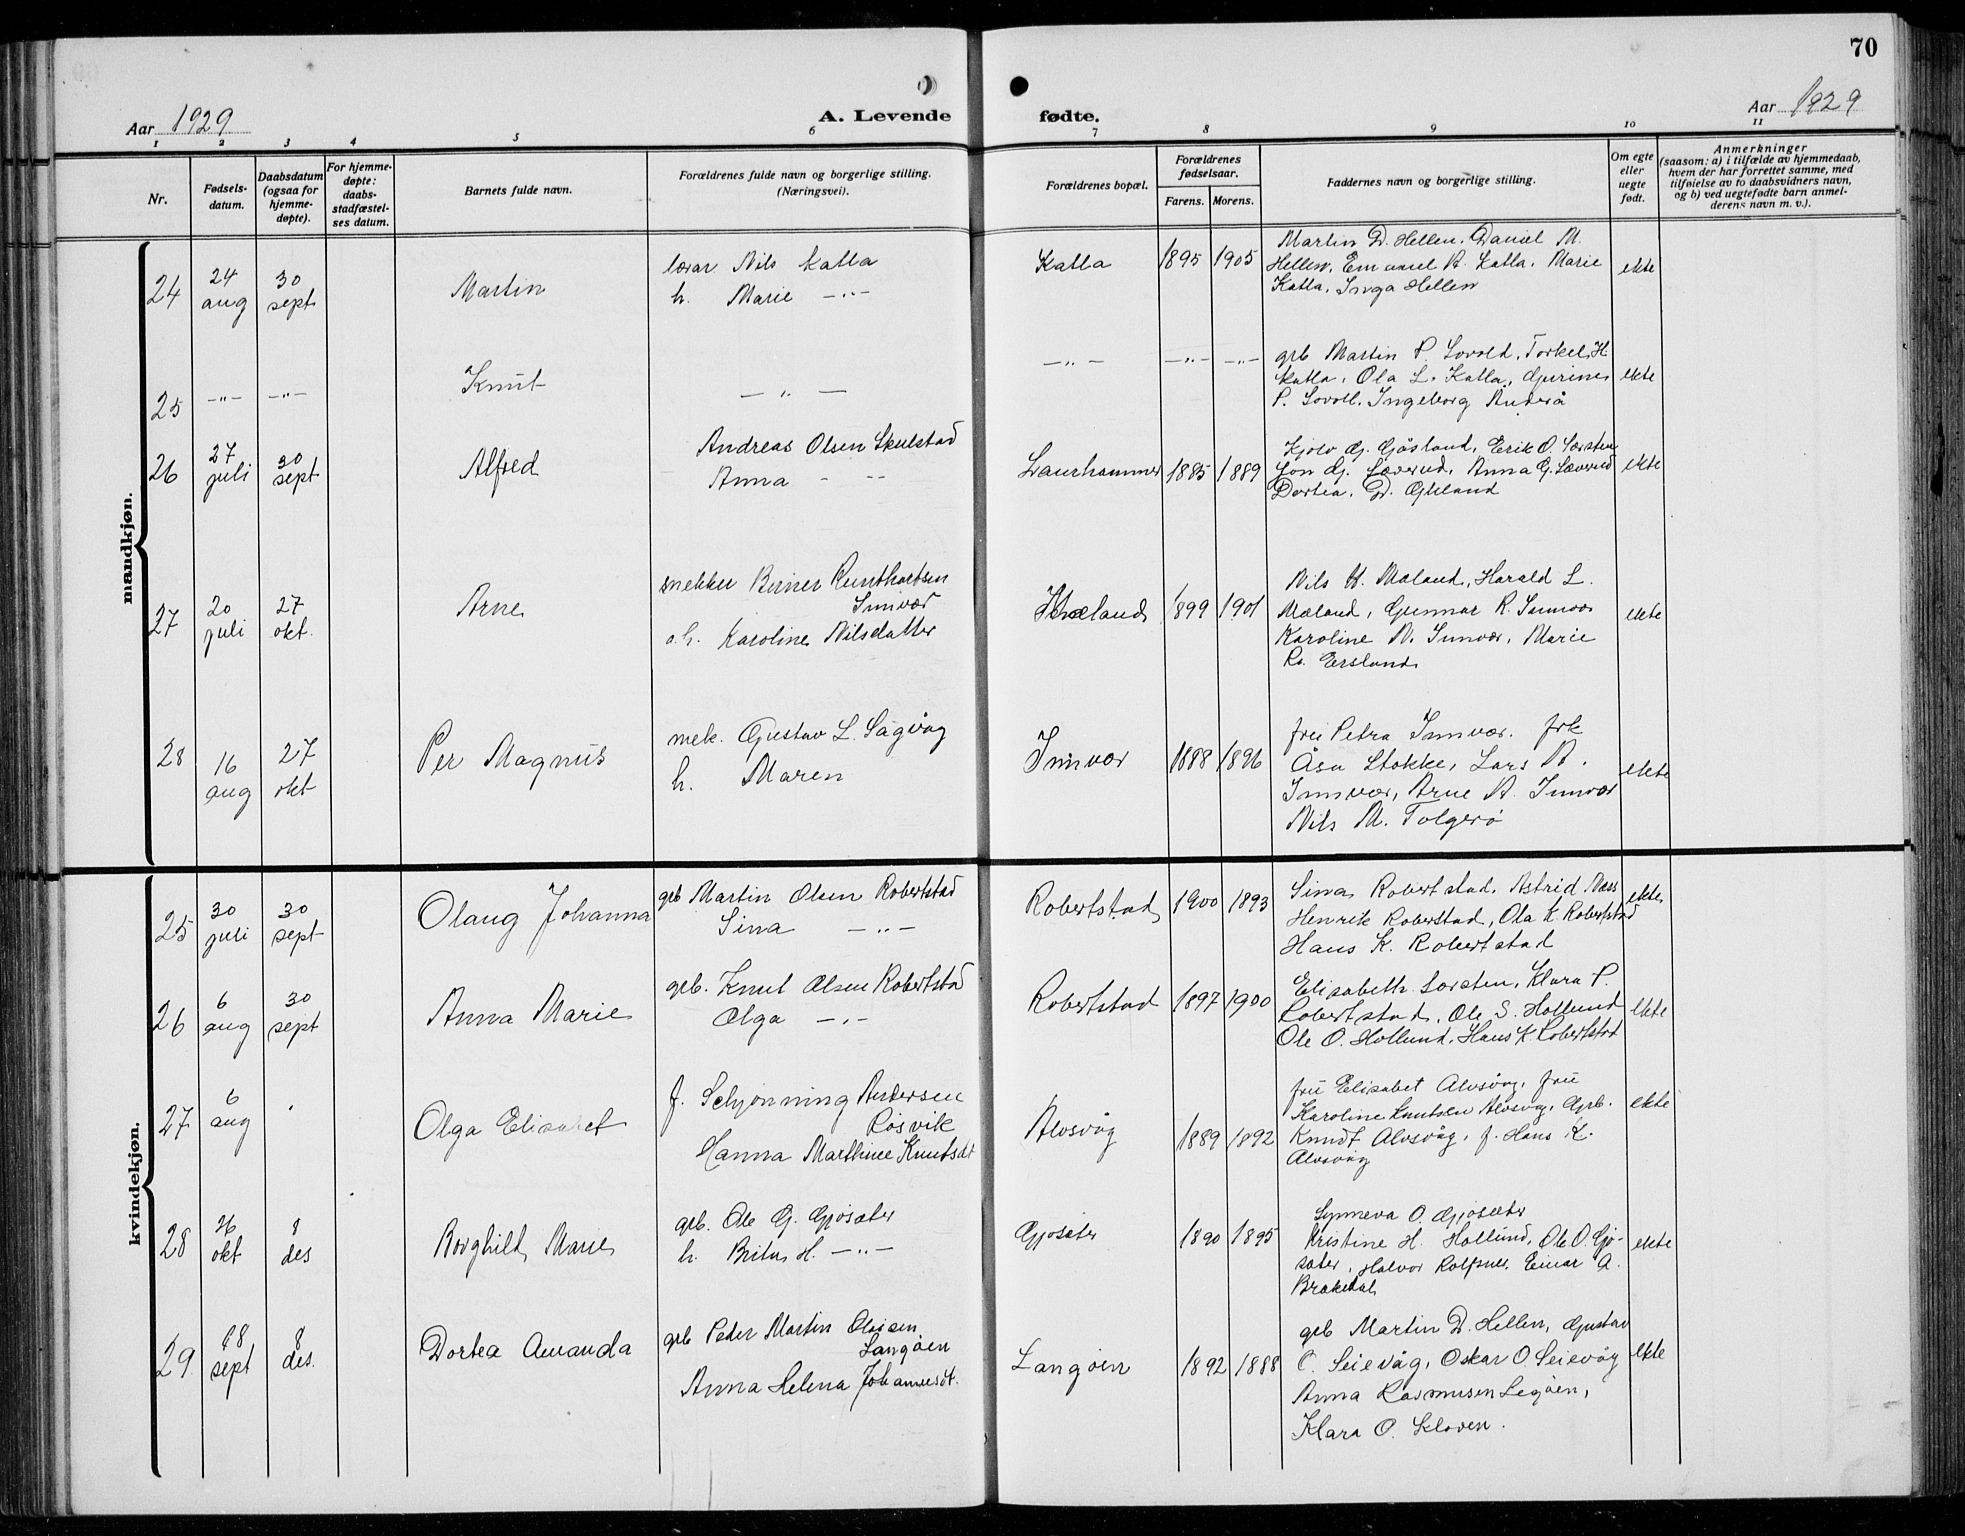 70
Aar 1929
A. Levende
fødte.
Aar 1929
1 2 3 4 5 6 7 8 9 10 11
Nr.
Fødsels-
datum.
Daabsdatum
(ogsaa for
hjemme-
døpte).
For hjemme-
døpte:
daabs-
stadfæstel-
ses datum.
Barnets fulde navn.
Forældrenes fulde navn og borgerlige stilling.
(Næringsvei).
Forældrenes bopæl.
Forældrenes
fødselsaar.
Farens. Morens.
Faddernes navn og borgerlige stilling.
Om egte
eller
uegte
født.
Anmerkninger
(saasom: a) i tilfælde av hjemmedaab,
hvem der har forrettet samme, med
tilføielse av to daabsvidners navn,
og b) ved uegtefødte barn anmel-
derens navn m. v.).
mandkjøn.
24
24
aug
30
sept
Martin
lærar Nils Katla
h. Marie —"—
Katla
1895 1905
Martin D. Hellen. Daniel M.
Hellen, Emanuel A. Katla. Marie
Katla. Inga Hellen
ekte
25
—"— —"—
Knut
— " —
—"— —"— —"—
grb Martin P. Lovold, Torkel H.
Katla, Ola L. Katla,
P. Lovoll. Ingeborg
ekte
26
27
juli
30
sept
Alfred
Andreas Olsen Skulstad
Anna - --
1885 1889
Erik O. Sørsten
Jon Gj. Sæverud, Anna G. Sæverud
Dortea. D.
ekte
27
20
juli
27
okt.
Arne
snekker
Innvær
a. h. Karoline Nilsdatter
1899 1901
Nils H. Mæland, Harald L.
Mæland, Gunnar R. Innvær
Karoline A. Innvær, Marie
Ersland
ekte
28
16
aug
27
okt
Per Magnus
mek. Gustav L. Sagvåg
h. Maren
Innvær
1888 1896
fru Petra Innvær. frk
Åsa Stokke, Lars A.
Innvær, Arne A. Innvær
Nils M. Folgerø
ekte
kvindekjøn.
25
30
juli
30
sept
Olaug Johanna
grb Martin Olsen Robertstad
Sina —"—
Robertstad
1900 1893
Sina Robertstad. Astrid Næss
Henrik Robertstad, Ola K. Robertstad
Hans K. Robertstad
ekte
26
6
aug
30
sept
Anna Marie
grb. Knut Olsen Robertstad
Olga —"—
Robertstad
1897 1900
Elisabeth Sørsten, Klara P.
Robertstad, Ole S. Hollund
Ole O. Hollund, Hans K. Robertstad
ekte
27
6
aug
Olga Elisabet
f. Schjønning Andersen
Røsvik
Hanna Marthine Knutsdt
Alvsvåg
1889 1892
fru Elisabet Alvsvåg, fru
Karoline Knutsen Alvsvåg, Grb.
Knudt Alvsvåg, f. Hans K.
Alvsvåg
ekte
28
26
okt
8
des
Borghild Marie
grb. Ole G. Gjøsæter
h. Brita H. —"—
Gjøsæter
1890 1895
Synneva O. Gjøsæter
Kristine H. Hollund, Ole O. Gjø-
sæter, Halvor Rolfsnes, Einar A.
Brakedal
ekte
29
18
sept
8
des.
Dortea Amanda
grb Peder Martin Olsen
Langøen
Anna Helena Johannesdt.
Langøen
1892 1888
grb Martin D. Hellen, Gustav
O. Seievåg, Oskar O. Seievåg
Anna Rasmusen
Klara O. Kloven.
ekte